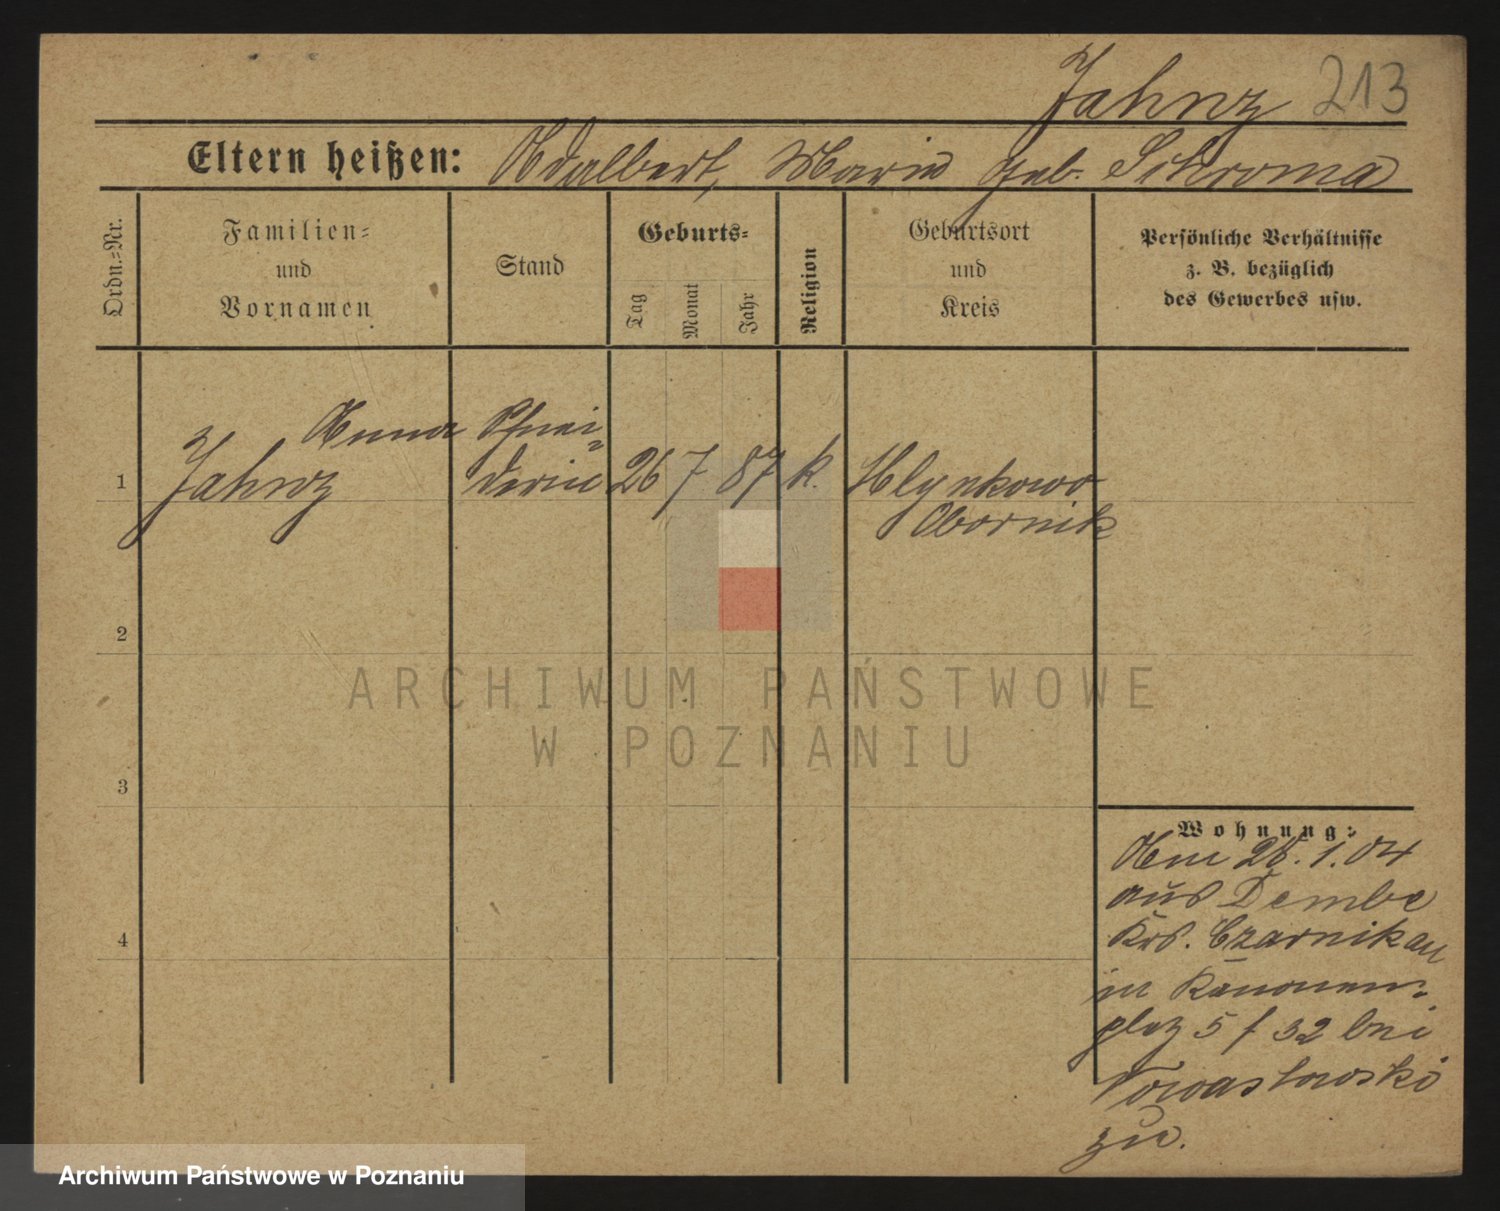 Jahnz 213
Eltern heißen: Adalbert, Marie geb. Sikroma
Ordn.-Nr.
Familien-
und
Vornamen
Stand
Geburts-
Tag
Monat
Jahr
Religion
Geburtsort
und
Kreis
Persönliche Verhältnisse
z. B. bezüglich
des Gewerbes usw.
Anna
Schnei-
1 Jahnz derin 26 7 87 k. Hlynkowo
Obornik
2
ARCHIWUM PAŃSTWOWE
W POZNANIU
3
Wohnung:
Am 28.1.04
aus Dembe
Krs. Czarnikau
4
in Kanonen-
platz 5 f 32 bei
Nowaslowski
zu.
Archiwum Państwowe w Poznaniu